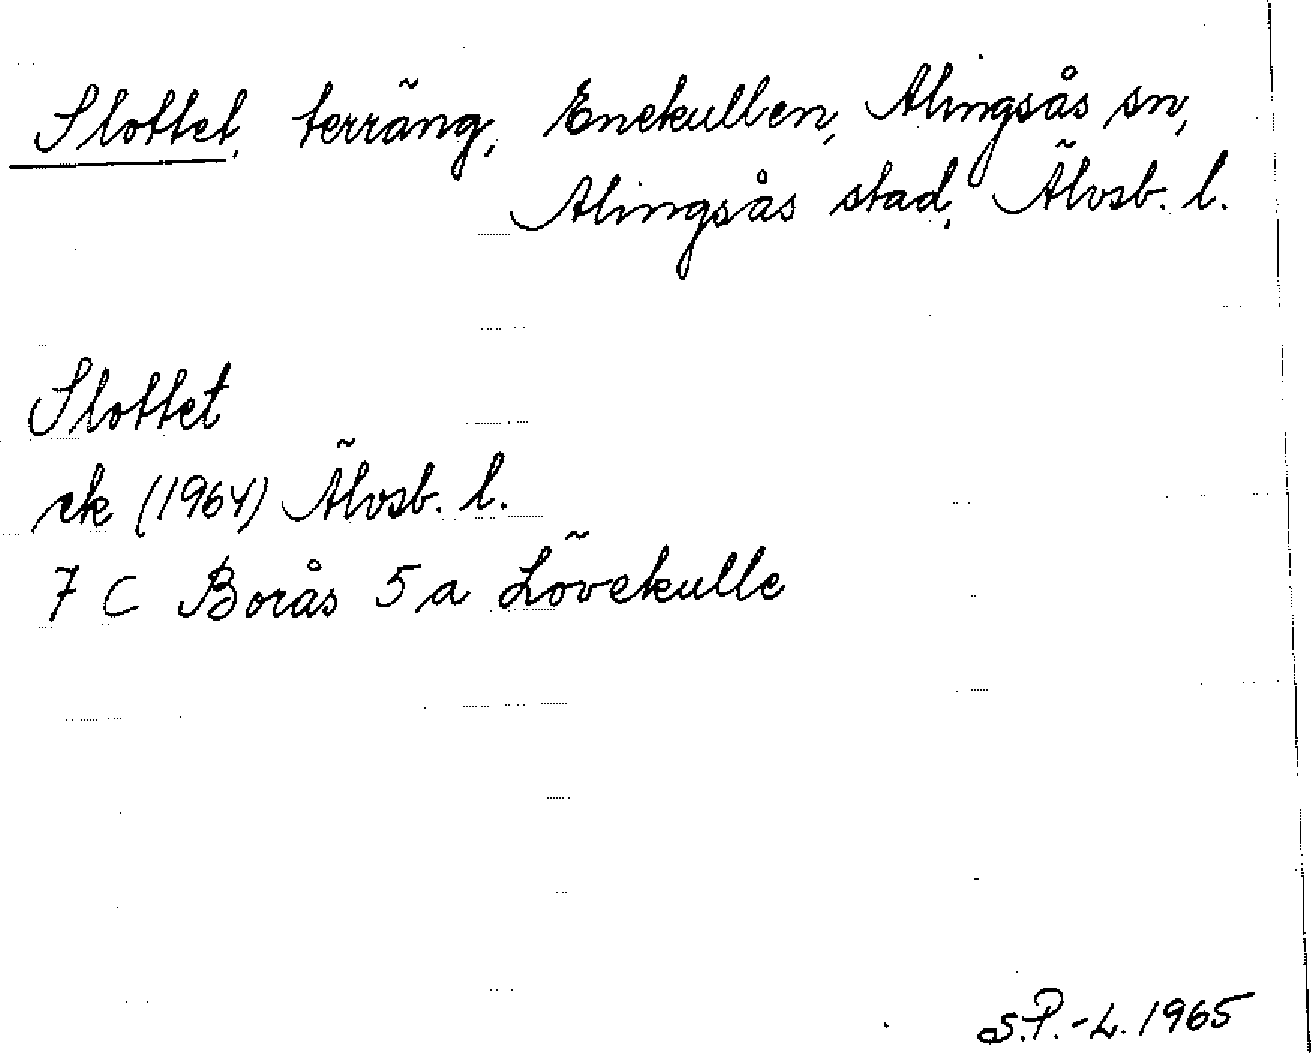 Slottet, terräng, Enekullen, Alingsås sn,
Alingsås stad, Älvsb. l.
Slottet
ek (1964) Älvsb. l.
7 C Borås 5 a Lövekulle
S.P.-L. 1965